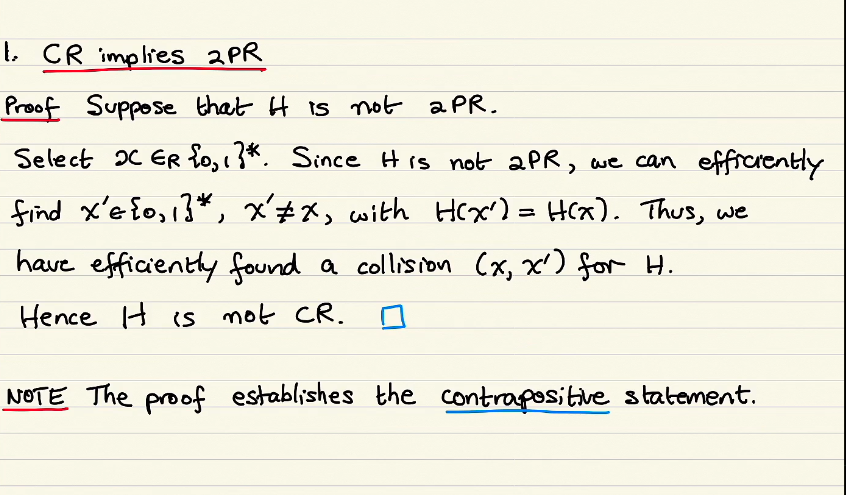 1. CR implies 2PR
Proof Suppose that H is not 2PR.
Select x ∈R {0,1}*. Since H is not 2PR, we can efficiently
find x'∈{0,1}*, x'≠x, with H(x') = H(x). Thus, we
have efficiently found a collision (x, x') for H.
Hence H is not CR. □
NOTE The proof establishes the contrapositive statement.